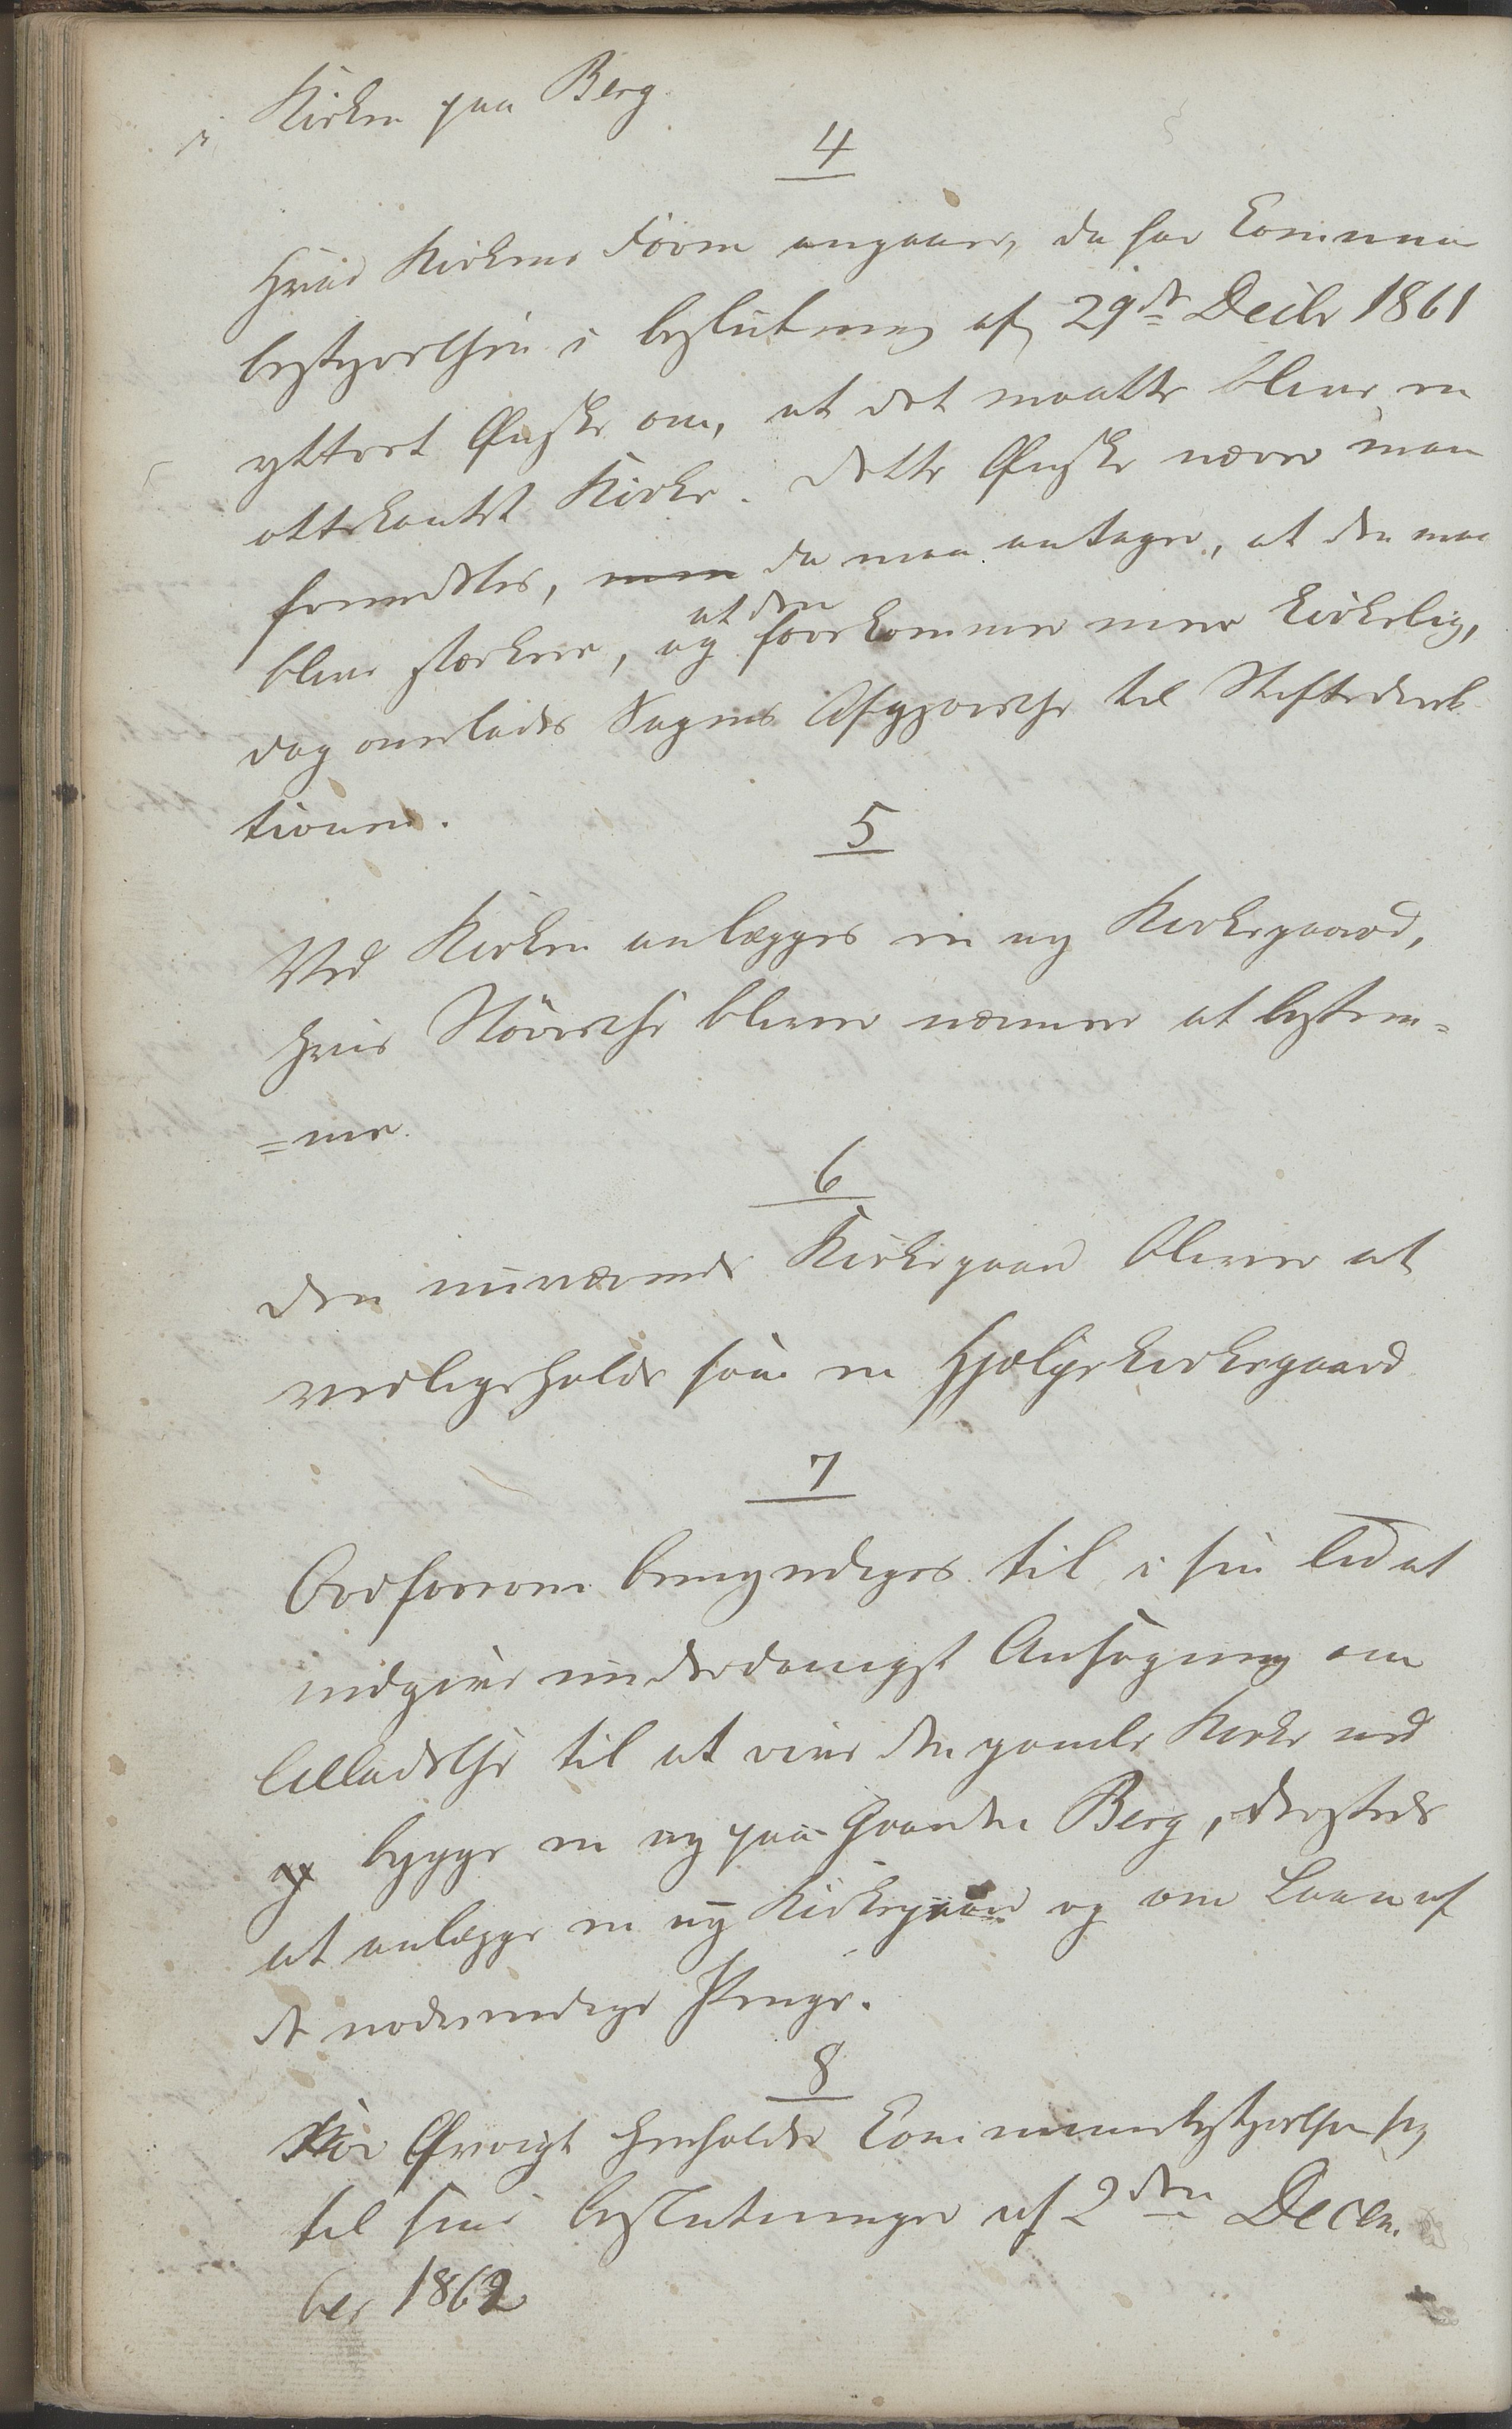 Kirken paa Berg.
4
Hvad Kirkens Form angaaer, da har Commune
bestyrelsen i beslutning af 29de Decbr 1861
yttret Ønske om, at det maatte blive en
ottekantet Kirke. Dette Ønske nærer man
fremdeles, men da man antager, at den maa
at den
blive stærkere, og forekommer mere kirkelig,
dog overlades Sagens Afgjørelse til Stiftsdirek
tionen.
5
Ved Kirken anlægges en ny Kirkegaard,
hvis Størrelse bliver nærmere at bestem=
=me.
6
Den nuværende Kirkegaard bliver at
vedligeholde som en Hjelpekirkegaard
7
Ordføreren bemyndiges til, i sin Tid at
indgive underdanigst Ansøgning om
Tilladelse til at rive den gamle Kirke ned
og bygge en ny paa Gaarden Berg, dersteds
at anlægge en ny Kirkegaard og om Laan af
de nødvendige Penge.
8
For Øvrigt henholder Communebestyrelsen sig
til sine beslutninger af 2den Decem
ber 1862